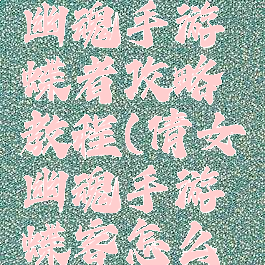 幽魂手游
蝶者攻略
教程(倩女
幽魂手游
蝶客怎么